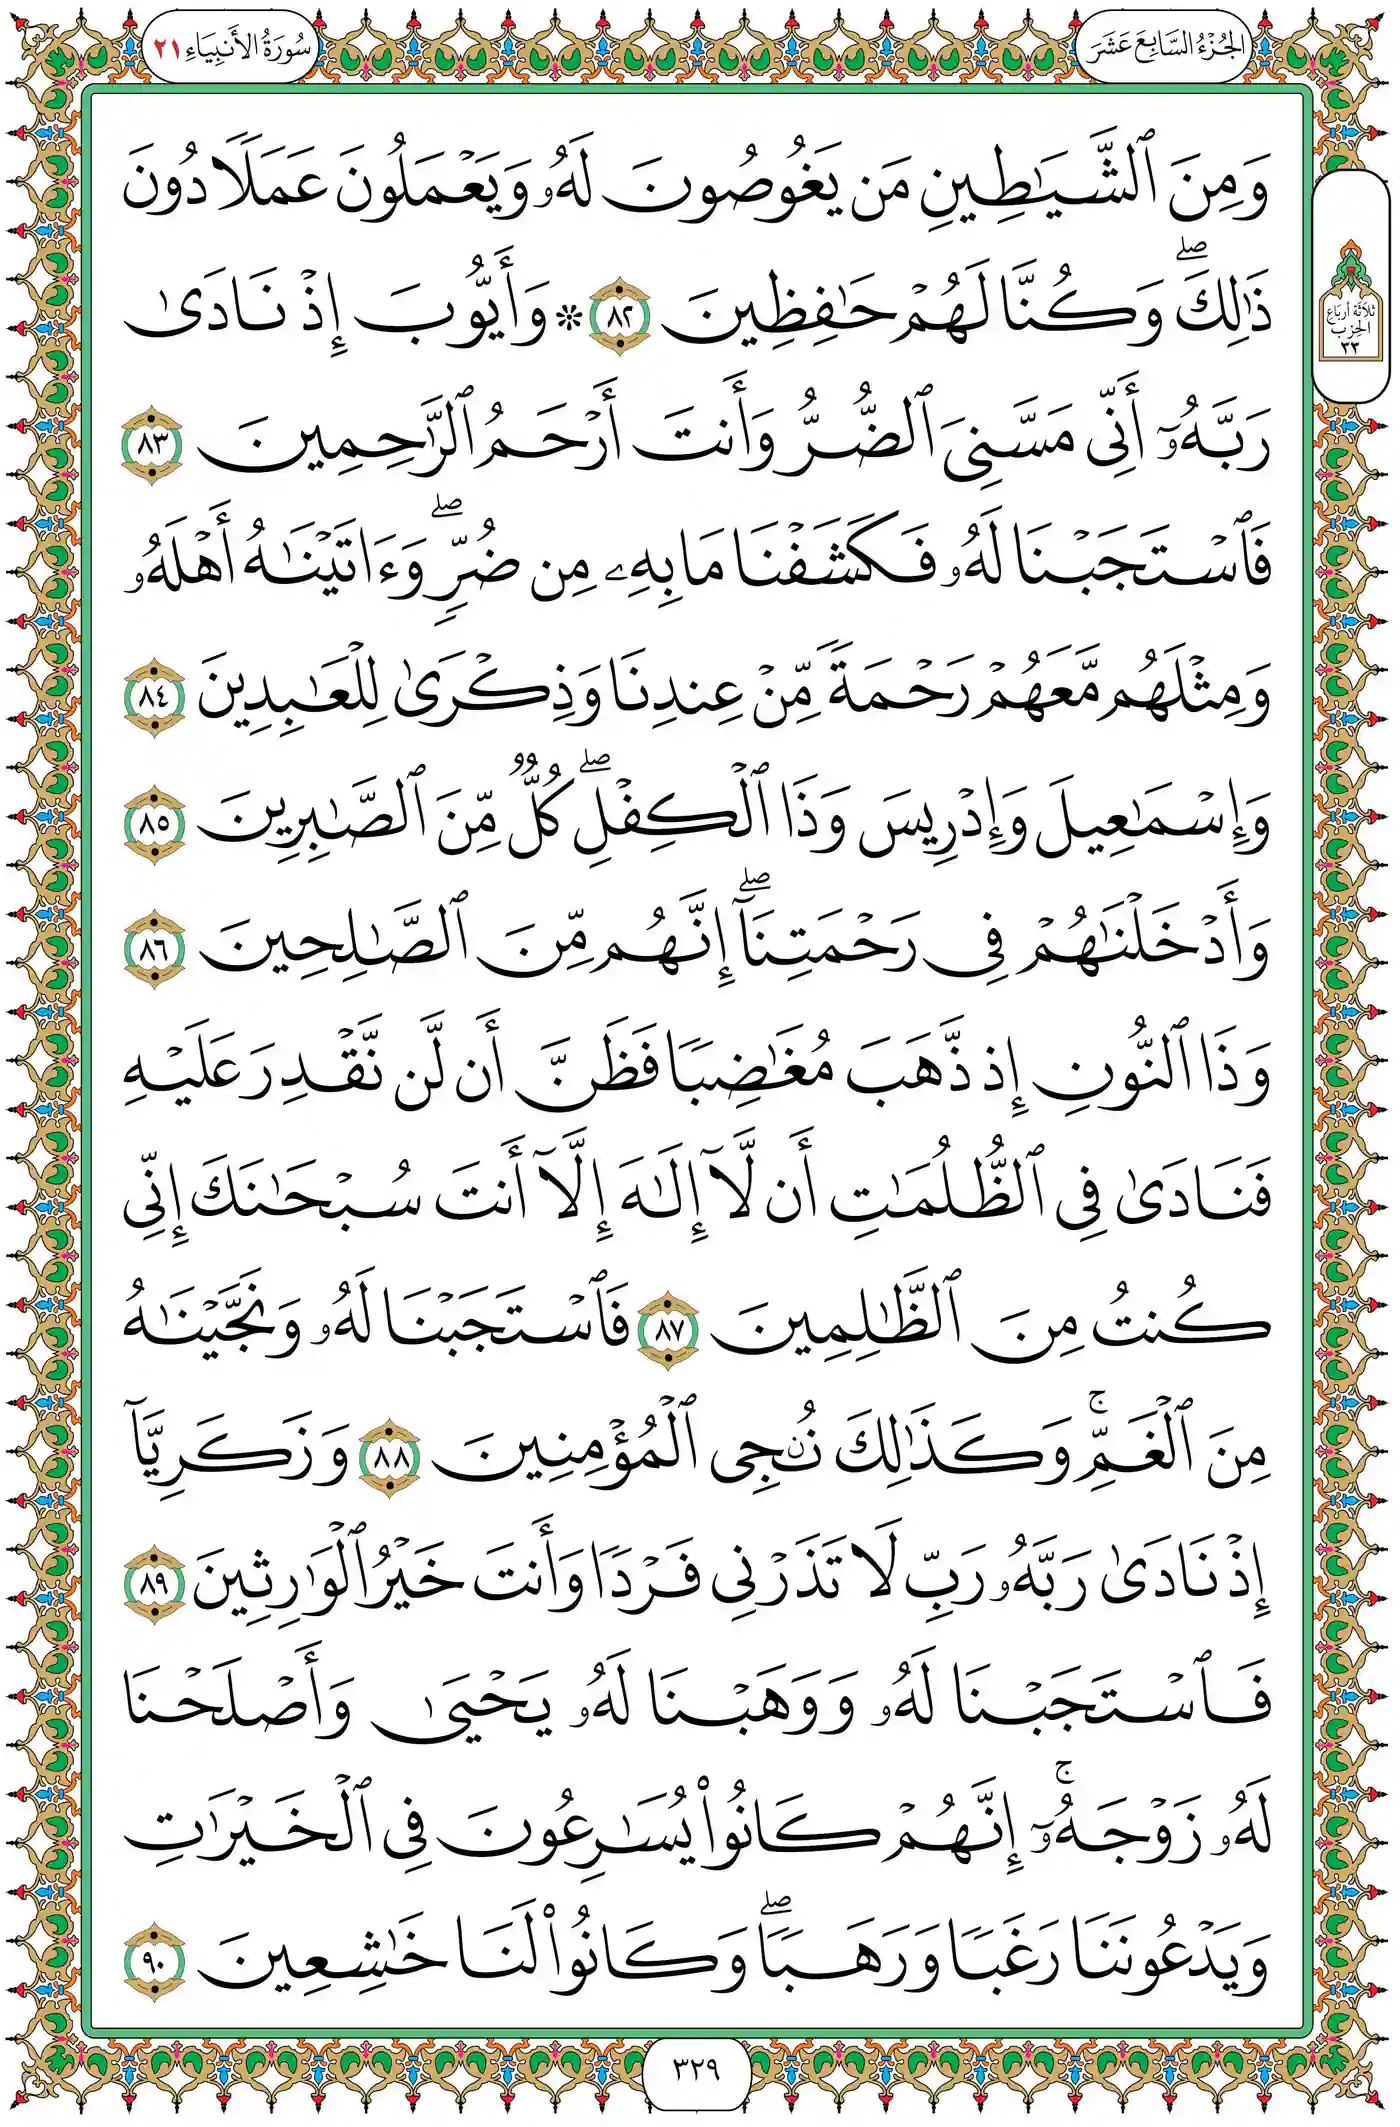 الجُزْءُ السَّابِعَ عَشَرَ
سُورَةُ الأَنبِيَاءِ ٢١
وَمِنَ ٱلشَّيَٰطِينِ مَن يَغُوصُونَ لَهُۥ وَيَعۡمَلُونَ عَمَلٗا دُونَ
ذَٰلِكَۖ وَكُنَّا لَهُمۡ حَٰفِظِينَ ٨٢ ۞ وَأَيُّوبَ إِذۡ نَادَىٰ
ثلاثة أرباع
الحزب
٣٣
رَبَّهُۥٓ أَنِّي مَسَّنِيَ ٱلضُّرُّ وَأَنتَ أَرۡحَمُ ٱلرَّٰحِمِينَ ٨٣
فَٱسۡتَجَبۡنَا لَهُۥ فَكَشَفۡنَا مَا بِهِۦ مِن ضُرّٖۖ وَءَاتَيۡنَٰهُ أَهۡلَهُۥ
وَمِثۡلَهُم مَّعَهُمۡ رَحۡمَةٗ مِّنۡ عِندِنَا وَذِكۡرَىٰ لِلۡعَٰبِدِينَ ٨٤
وَإِسۡمَٰعِيلَ وَإِدۡرِيسَ وَذَا ٱلۡكِفۡلِۖ كُلّٞ مِّنَ ٱلصَّٰبِرِينَ ٨٥
وَأَدۡخَلۡنَٰهُمۡ فِي رَحۡمَتِنَآۖ إِنَّهُم مِّنَ ٱلصَّٰلِحِينَ ٨٦
وَذَا ٱلنُّونِ إِذ ذَّهَبَ مُغَٰضِبٗا فَظَنَّ أَن لَّن نَّقۡدِرَ عَلَيۡهِ
فَنَادَىٰ فِي ٱلظُّلُمَٰتِ أَن لَّآ إِلَٰهَ إِلَّآ أَنتَ سُبۡحَٰنَكَ إِنِّي
كُنتُ مِنَ ٱلظَّٰلِمِينَ ٨٧ فَٱسۡتَجَبۡنَا لَهُۥ وَنَجَّيۡنَٰهُ
مِنَ ٱلۡغَمِّۚ وَكَذَٰلِكَ نُـۨجِي ٱلۡمُؤۡمِنِينَ ٨٨ وَزَكَرِيَّآ
إِذۡ نَادَىٰ رَبَّهُۥ رَبِّ لَا تَذَرۡنِي فَرۡدٗا وَأَنتَ خَيۡرُ ٱلۡوَٰرِثِينَ ٨٩
فَٱسۡتَجَبۡنَا لَهُۥ وَوَهَبۡنَا لَهُۥ يَحۡيَىٰ وَأَصۡلَحۡنَا
لَهُۥ زَوۡجَهُۥٓۚ إِنَّهُمۡ كَانُواْ يُسَٰرِعُونَ فِي ٱلۡخَيۡرَٰتِ
وَيَدۡعُونَنَا رَغَبٗا وَرَهَبٗاۖ وَكَانُواْ لَنَا خَٰشِعِينَ ٩٠
٣٢٩